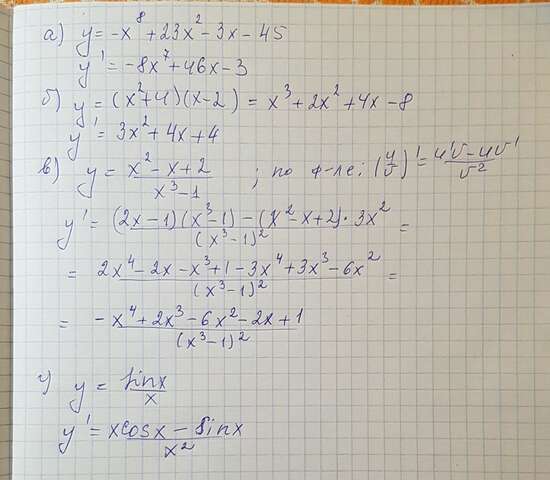 а) y = -x⁸ + 23x² - 3x - 45
y' = -8x⁷ + 46x - 3
б) y = (x² + 4)(x - 2) = x³ + 2x² + 4x - 8
y' = 3x² + 4x + 4
в) y = (x² - x + 2)/(x³ - 1) ; по ф-ле: (u/v)' = (u'v - uv')/v²
y' = ((2x - 1)(x³ - 1) - (x² - x + 2) · 3x²)/(x³ - 1)² =
= (2x⁴ - 2x - x³ + 1 - 3x⁴ + 3x³ - 6x²)/(x³ - 1)² =
= (-x⁴ + 2x³ - 6x² - 2x + 1)/(x³ - 1)²
г) y = sinx/x
y' = (xcosx - sinx)/x²